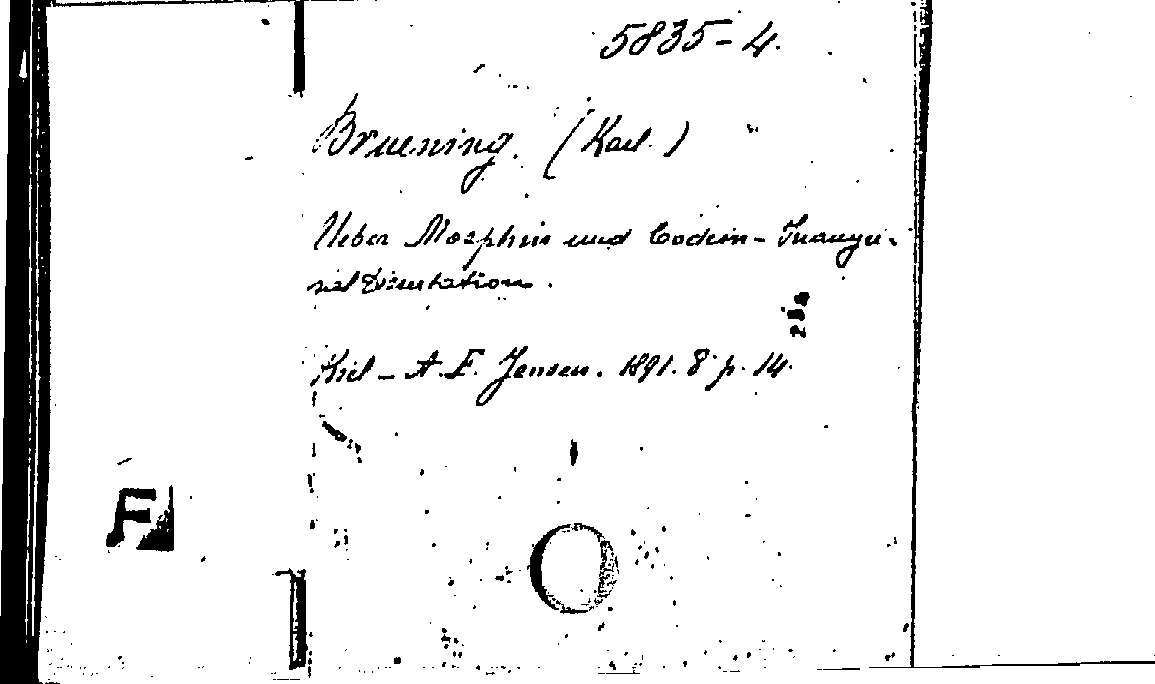 5835-4.
Bruening. (Karl.)
Ueber Morphin und Codein - Inaugu-
ral Dissertation.
Kiel - A. F. Jensen. 1891. 8° p. 14.
F